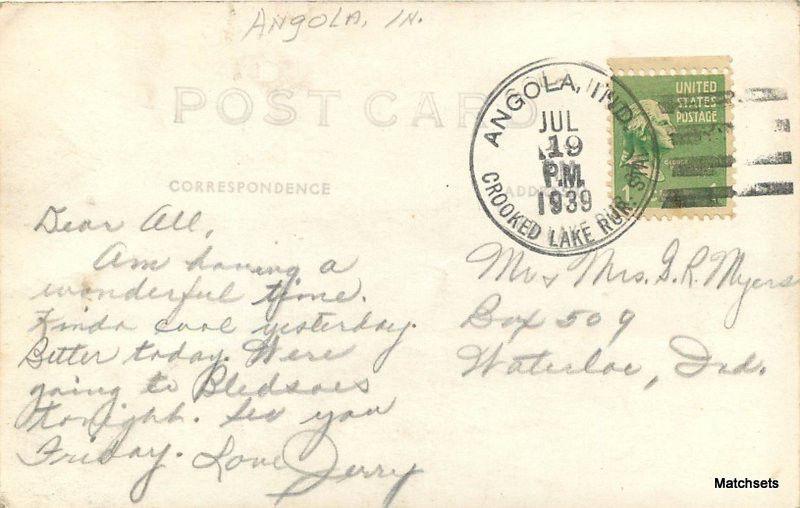 ANGOLA, IN.
POST CARD
CORRESPONDENCE
ADDRESS
ANGOLA, IND.
JUL
19
P.M.
1939
CROOKED LAKE RUR. STA.
UNITED
STATES
POSTAGE
GEORGE
1 1
Dear All,
Am having a
wonderful time.
Kinda cool yesterday.
Better today. Were
going to Bledsoes
tonight. See you
Friday. Love Jerry
Mr & Mrs. G. R. Myers
Box 509
Waterloo, Ind.
Matchsets